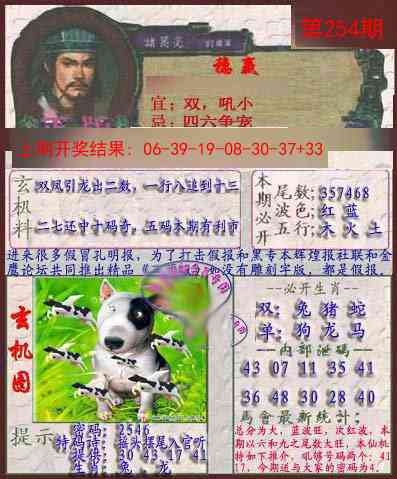 第254期
諸葛亮
稳赢
宜：双，吼小
忌：四六争宠
上期开奖结果：06-39-19-08-30-37+33
玄机料
双凤引龙出二数，一行入追到十三
二七还中十码奇，五码本期有利市
本期必开
尾数；357468
波色；红 蓝
五行；木 火 土
进来很多假冒孔明报，为了打击假报和黑专本辉煌报社联和金
鹰论坛共同推出精品
如没有雕刻字版，都是假报．
玄机图
必开生肖
双：兔 猪 蛇
单：狗 龙 马
内部泄码
43 07 11 35 41
36 48 30 28 40
馬會最新統計：
提示
密码：2546
特码诗：摇头摆尾入官听
提供：30 43 17 41
生肖：兔 ，龙
总分为大，蓝波旺，次红波，本
期以六和九之尾数大旺，本仙机
特如下推介，吼够号码两个：41
17，今期送与大家的密码为4.